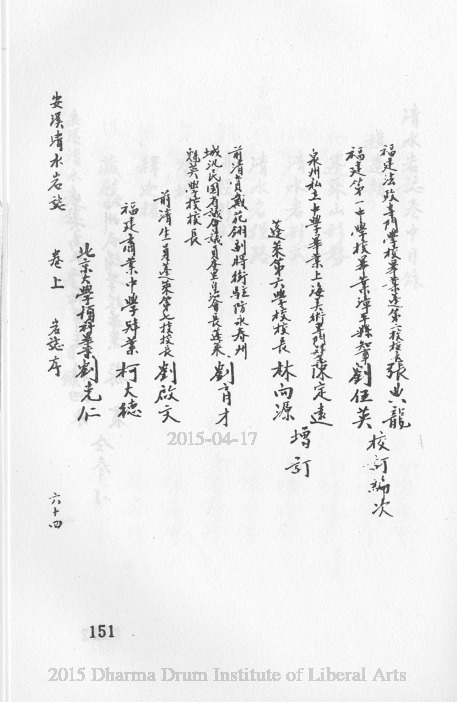 福建法政專門學校畢業蓬萊第一校校長張典龍
福建第一中學校畢業漳平縣知事劉伍英 校訂編次
泉州私立中學畢業上海美術專門陳定遠
蓬萊第六學校校長林向源 增訂
前清貢戴花翎副將銜駐防永春州
城汛民國省議會議員蓬萊自治會長蓬萊
魁英學校校長 劉育才
前清生員蓬萊第七校校長劉啟文
福建商業中學畢業柯大德
北京大學預科畢業劉先仁
安溪清水岩誌 卷上 岩誌序 六十四
2015-04-17
151
2015 Dharma Drum Institute of Liberal Arts